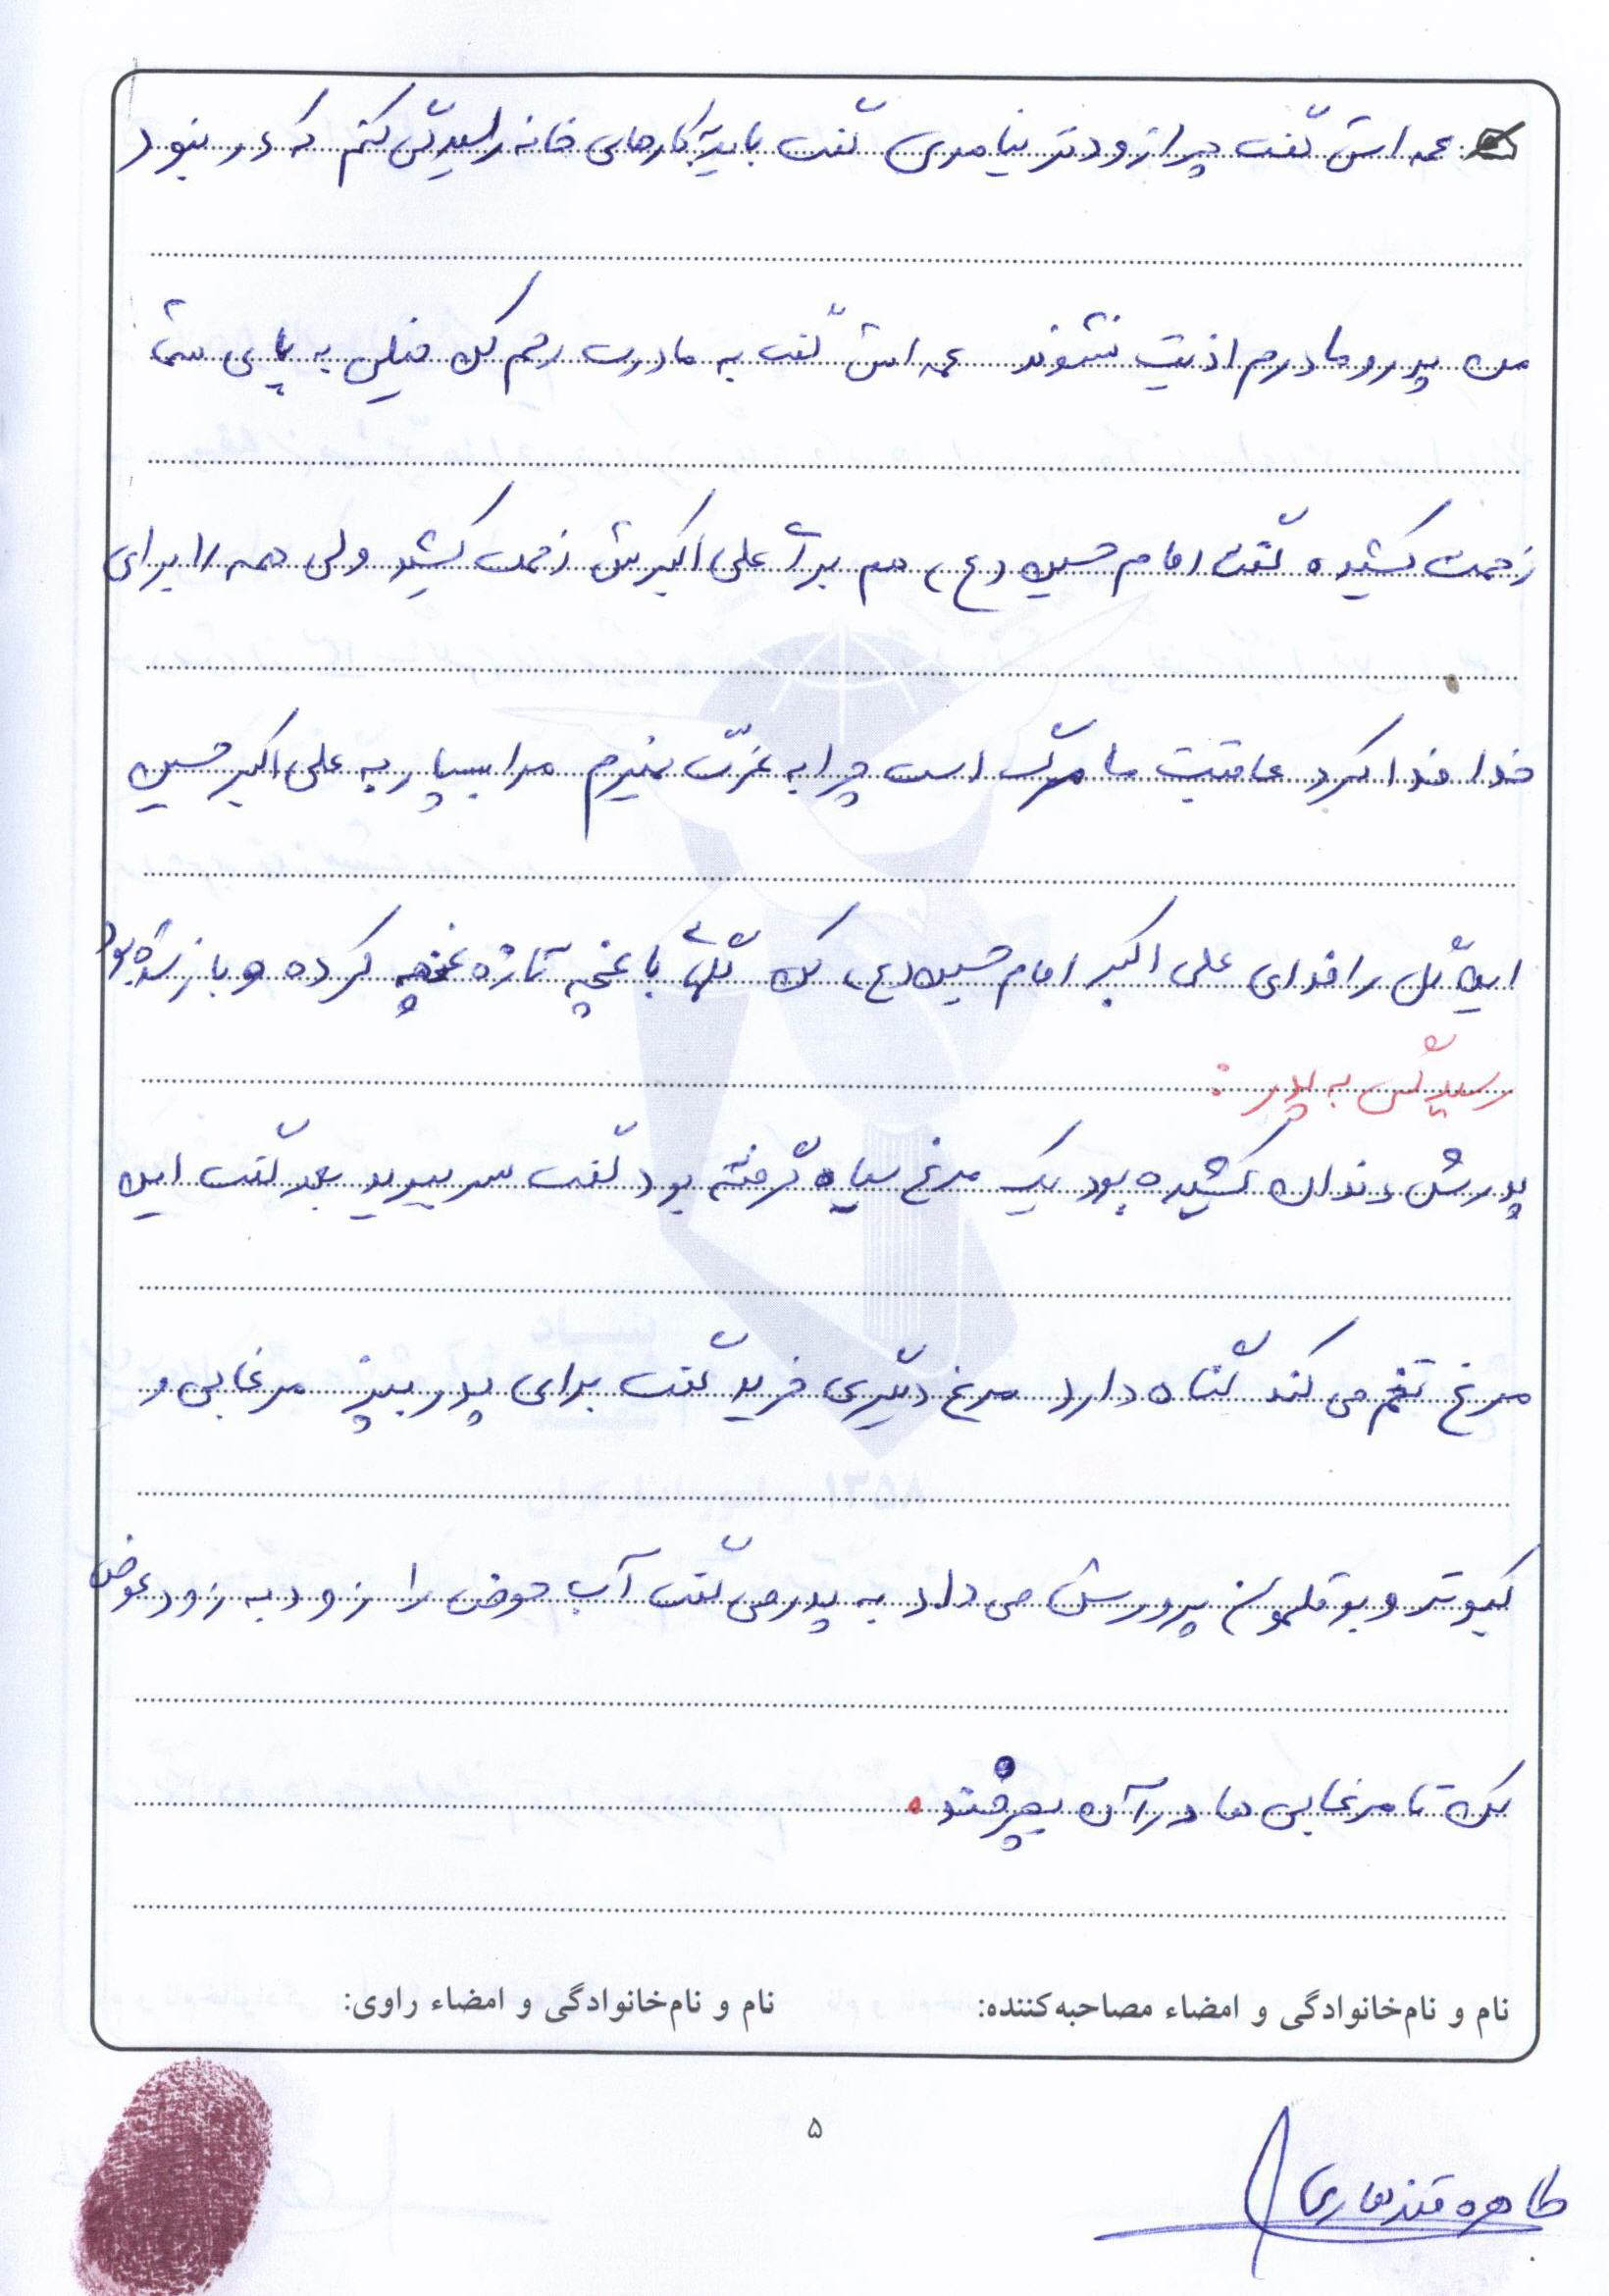 عمه اش گفت چرا زودتر نیامدی گفت باید به کارهای خانه رسیدگی کنم که در نبود
من پدر و مادرم اذیت نشوند عمه اش گفت به مادرت رحم کن خیلی به پای شما
زحمت کشیده گفت امام حسین (ع) هم برای علی اکبرش زحمت کشید ولی همه را برای
خدا فدا کرد عاقبت ما مرگ است چرا به عزّت نمیرم مرا بسپار به علی اکبر حسین
این گل را فدای علی اکبر امام حسین (ع) کن گلهای با غنچه تازه غنچه کرده و باز شده بود
رسیدگی به پدر :
پدرش دندان کشیده بود یک مرغ سیاه گرفته بود گفت سر ببرید بعد گفت این
مرغ تخم می کند گناه دارد مرغ دیگری خرید گفت برای پدر بپز مرغابی و
کبوتر و بوقلمون پرورش می داد به پدر می گفت آب حوض را زود به زود عوض
کن تا مرغابی ها در آن بچرخند.
نام و نام‌خانوادگی و امضاء مصاحبه‌کننده: نام و نام‌خانوادگی و امضاء راوی:
۵
طاهره قندهاری